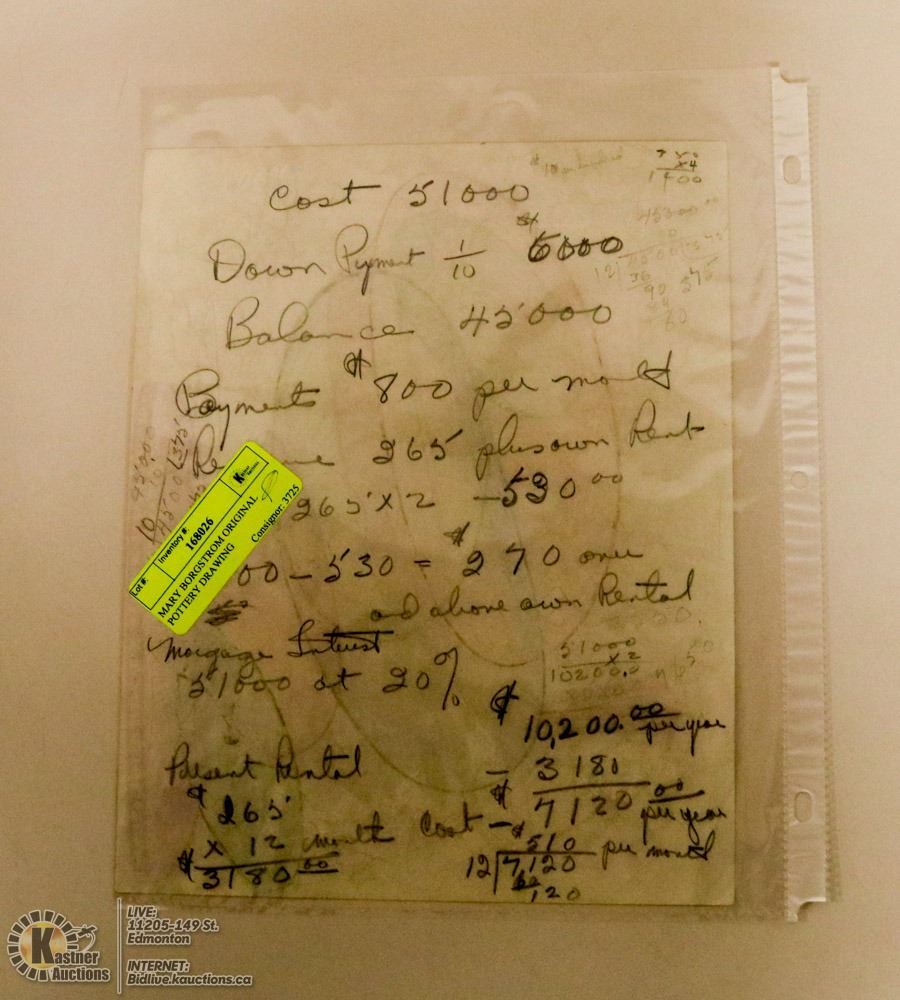 Cost 51000
Down Pyment 1/10 $ 6000
Balance 45000
Payments $800 per month
265 plus own Rent
265 x 2 - 530 00
00 - 530 = $270 over
and above own Rental
Morgage Interest
51000 at 20%
51000
x 2
102000.0
$ 10,200.00 per year
- 3180
$ 7120 00 per year
Present Rental
$ 265
x 12 month
$ 3180 00
Cost - $ 510 per month
12 7,120
60
120
x4
1400
45000 00
12
36
90
Lot #:
Inventory #:
168026
Kastner Auctions
MARY BORGSTROM ORIGINAL
POTTERY DRAWING
Consignor: 3725
Kastner
Auctions
LIVE:
11205-149 St.
Edmonton
INTERNET:
Bidlive.kauctions.ca